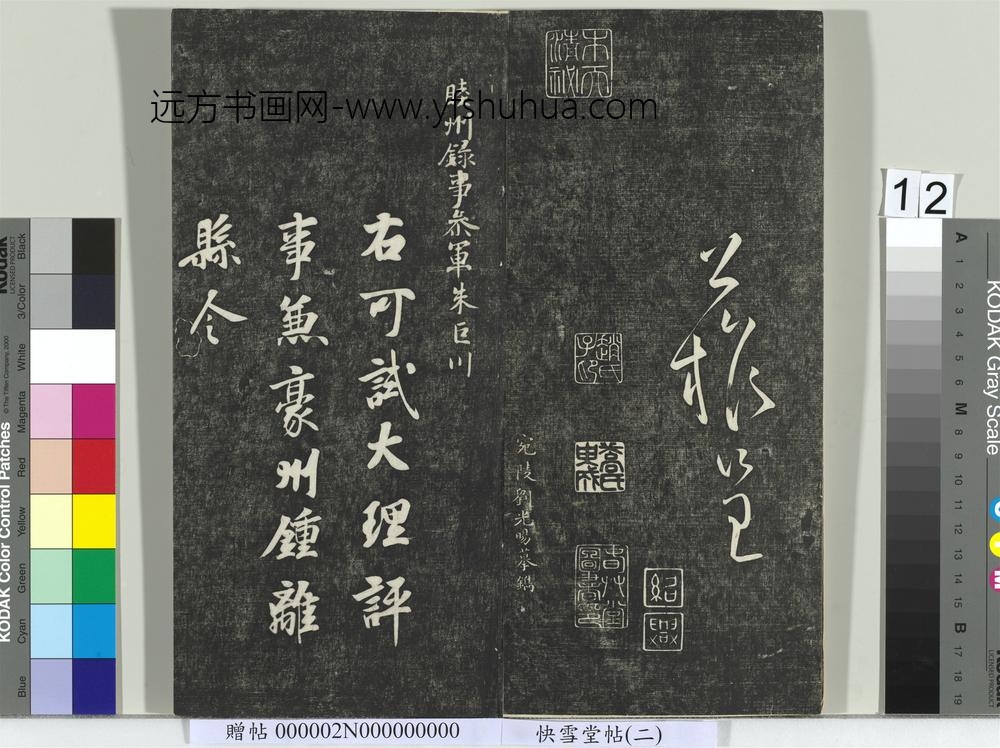 公權呈
紹興
宛陵劉光暘摹鐫
睦州錄事叅軍朱巨川
右可試大理評
事兼豪州鍾離
縣令
远方书画网-www.yfshuhua.com
12
贈帖 000002N000000000
快雪堂帖(二)
KODAK Color Control Patches
© The Tiffen Company, 2000
Kodak
LICENSED PRODUCT
Black
3/Color
White
Magenta
Red
Yellow
Green
Cyan
Blue
KODAK Gray Scale
A 1 2 3 4 5 6 M 8 9 10 11 12 13 14 15 B 17 18 19